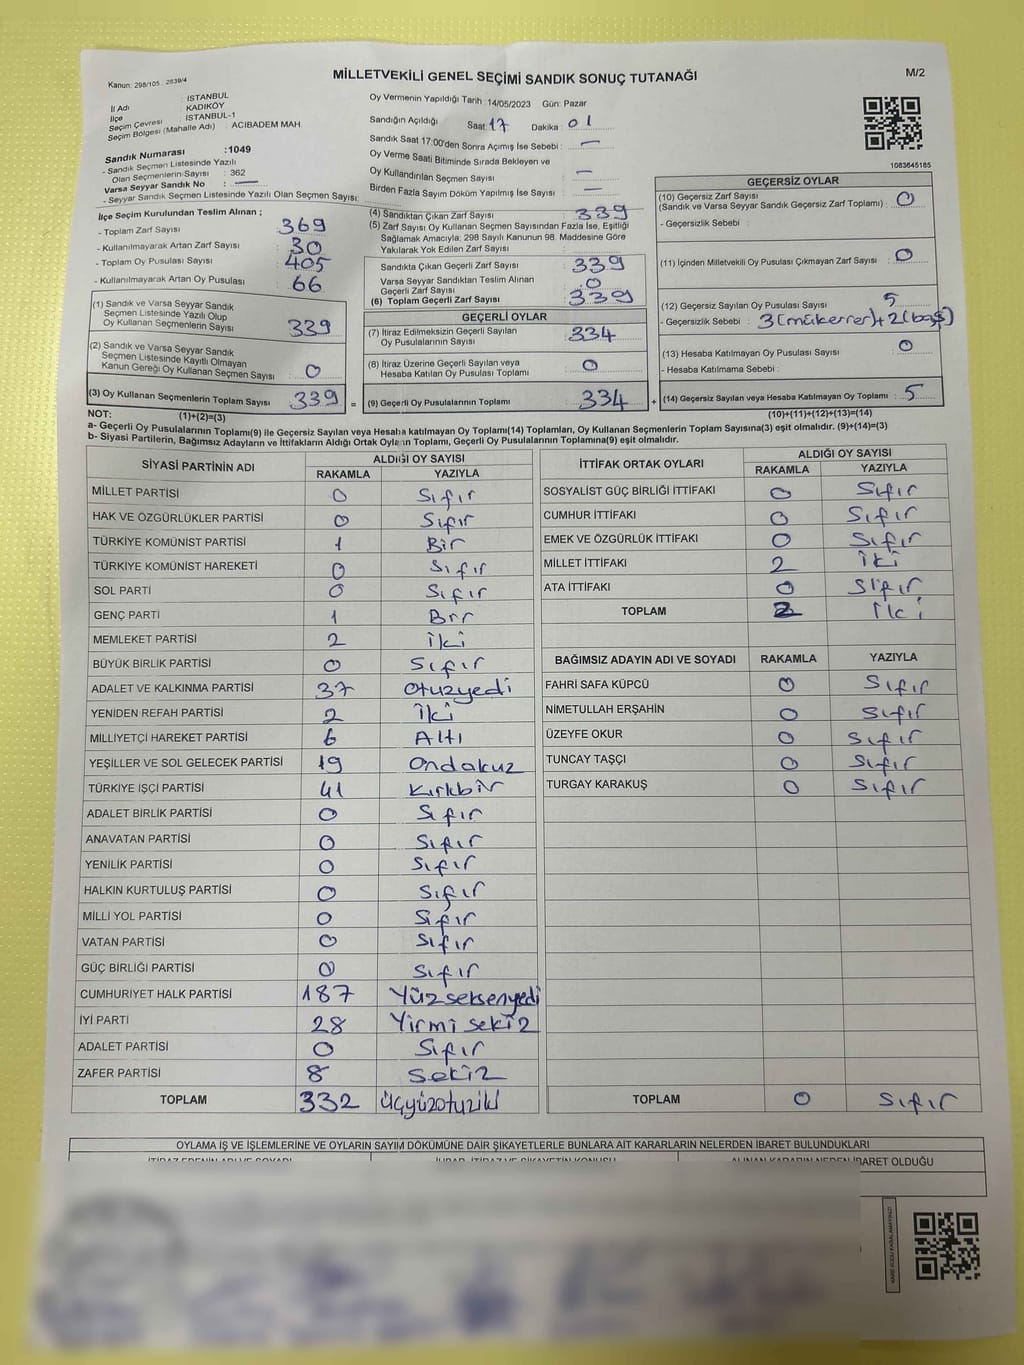 Kanun: 298/105 2839/4
MİLLETVEKİLİ GENEL SEÇİMİ SANDIK SONUÇ TUTANAĞI
M/2
İl Adı : İSTANBUL
İlçe : KADIKÖY
Seçim Çevresi : İSTANBUL-1
Seçim Bölgesi (Mahalle Adı) : ACIBADEM MAH.
Sandık Numarası :1049
- Sandık Seçmen Listesinde Yazılı
Olan Seçmenlerin Sayısı : 362
Varsa Seyyar Sandık No : —
- Seyyar Sandık Seçmen Listesinde Yazılı Olan Seçmen Sayısı:
Oy Vermenin Yapıldığı Tarih :14/05/2023 Gün: Pazar
Sandığın Açıldığı Saat: 17 Dakika : 01
Sandık Saat 17:00'den Sonra Açımış İse Sebebi : —
Oy Verme Saati Bitiminde Sırada Bekleyen ve
Oy Kullandırılan Seçmen Sayısı : —
Birden Fazla Sayım Döküm Yapılmış İse Sayısı : —
1083645185
İlçe Seçim Kurulundan Teslim Alınan ;
- Toplam Zarf Sayısı : 369
- Kullanılmayarak Artan Zarf Sayısı : 30
- Toplam Oy Pusulası Sayısı : 405
- Kullanılmayarak Artan Oy Pusulası : 66
(1) Sandık ve Varsa Seyyar Sandık
Seçmen Listesinde Yazılı Olup
Oy Kullanan Seçmenlerin Sayısı : 339
(2) Sandık ve Varsa Seyyar Sandık
Seçmen Listesinde Kayıtlı Olmayan
Kanun Gereği Oy Kullanan Seçmen Sayısı : 0
(3) Oy Kullanan Seçmenlerin Toplam Sayısı : 339 =
(4) Sandıktan Çıkan Zarf Sayısı : 339
(5) Zarf Sayısı Oy Kullanan Seçmen Sayısından Fazla İse, Eşitliği
Sağlamak Amacıyla; 298 Sayılı Kanunun 98. Maddesine Göre
Yakılarak Yok Edilen Zarf Sayısı :
Sandıkta Çıkan Geçerli Zarf Sayısı : 339
Varsa Seyyar Sandıktan Teslim Alınan
Geçerli Zarf Sayısı : 0
(6) Toplam Geçerli Zarf Sayısı : 339
GEÇERLİ OYLAR
(7) İtiraz Edilmeksizin Geçerli Sayılan
Oy Pusulalarının Sayısı : 334
(8) İtiraz Üzerine Geçerli Sayılan veya
Hesaba Katılan Oy Pusulası Toplamı : 0
(9) Geçerli Oy Pusulalarının Toplamı : 334 +
GEÇERSİZ OYLAR
(10) Geçersiz Zarf Sayısı
(Sandık ve Varsa Seyyar Sandık Geçersiz Zarf Toplamı) : 0
- Geçersizlik Sebebi :
(11) İçinden Milletvekili Oy Pusulası Çıkmayan Zarf Sayısı : 0
(12) Geçersiz Sayılan Oy Pusulası Sayısı : 5
- Geçersizlik Sebebi : 3(mükerrer)+2(boş)
(13) Hesaba Katılmayan Oy Pusulası Sayısı : 0
- Hesaba Katılmama Sebebi :
(14) Geçersiz Sayılan veya Hesaba Katılmayan Oy Toplamı : 5
NOT: (1)+(2)=(3)
(10)+(11)+(12)+(13)=(14)
a- Geçerli Oy Pusulalarının Toplamı(9) ile Geçersiz Sayılan veya Hesaba katılmayan Oy Toplamı(14) Toplamları, Oy Kullanan Seçmenlerin Toplam Sayısına(3) eşit olmalıdır. (9)+(14)=(3)
b- Siyasi Partilerin, Bağımsız Adayların ve İttifakların Aldığı Ortak Oyların Toplamı, Geçerli Oy Pusulalarının Toplamına(9) eşit olmalıdır.
SİYASİ PARTİNİN ADI ALDIĞI OY SAYISI
RAKAMLA YAZIYLA
MİLLET PARTİSİ 0 Sıfır
HAK VE ÖZGÜRLÜKLER PARTİSİ 0 Sıfır
TÜRKİYE KOMÜNİST PARTİSİ 1 Bir
TÜRKİYE KOMÜNİST HAREKETİ 0 Sıfır
SOL PARTİ 0 Sıfır
GENÇ PARTİ 1 Bir
MEMLEKET PARTİSİ 2 İki
BÜYÜK BİRLİK PARTİSİ 0 Sıfır
ADALET VE KALKINMA PARTİSİ 37 Otuzyedi
YENİDEN REFAH PARTİSİ 2 İki
MİLLİYETÇİ HAREKET PARTİSİ 6 Altı
YEŞİLLER VE SOL GELECEK PARTİSİ 19 Ondokuz
TÜRKİYE İŞÇİ PARTİSİ 41 Kırkbir
ADALET BİRLİK PARTİSİ 0 Sıfır
ANAVATAN PARTİSİ 0 Sıfır
YENİLİK PARTİSİ 0 Sıfır
HALKIN KURTULUŞ PARTİSİ 0 Sıfır
MİLLİ YOL PARTİSİ 0 Sıfır
VATAN PARTİSİ 0 Sıfır
GÜÇ BİRLİĞİ PARTİSİ 0 Sıfır
CUMHURİYET HALK PARTİSİ 187 Yüzseksenyedi
İYİ PARTİ 28 Yirmi sekiz
ADALET PARTİSİ 0 Sıfır
ZAFER PARTİSİ 8 Sekiz
TOPLAM 332 üçyüzotuziki
İTTİFAK ORTAK OYLARI ALDIĞI OY SAYISI
RAKAMLA YAZIYLA
SOSYALİST GÜÇ BİRLİĞİ İTTİFAKI 0 Sıfır
CUMHUR İTTİFAKI 0 Sıfır
EMEK VE ÖZGÜRLÜK İTTİFAKI 0 Sıfır
MİLLET İTTİFAKI 2 İki
ATA İTTİFAKI 0 Sıfır
TOPLAM 2 İki
BAĞIMSIZ ADAYIN ADI VE SOYADI RAKAMLA YAZIYLA
FAHRİ SAFA KÜPCÜ 0 Sıfır
NİMETULLAH ERŞAHİN 0 Sıfır
ÜZEYFE OKUR 0 Sıfır
TUNCAY TAŞÇI 0 Sıfır
TURGAY KARAKUŞ 0 Sıfır
TOPLAM 0 Sıfır
OYLAMA İŞ VE İŞLEMLERİNE VE OYLARIN SAYIM DÖKÜMÜNE DAİR ŞİKAYETLERLE BUNLARA AİT KARARLARIN NELERDEN İBARET BULUNDUKLARI
İTİRAZ EDENİN ADI VE SOYADI
ALINAN KARARIN NEDEN İBARET OLDUĞU